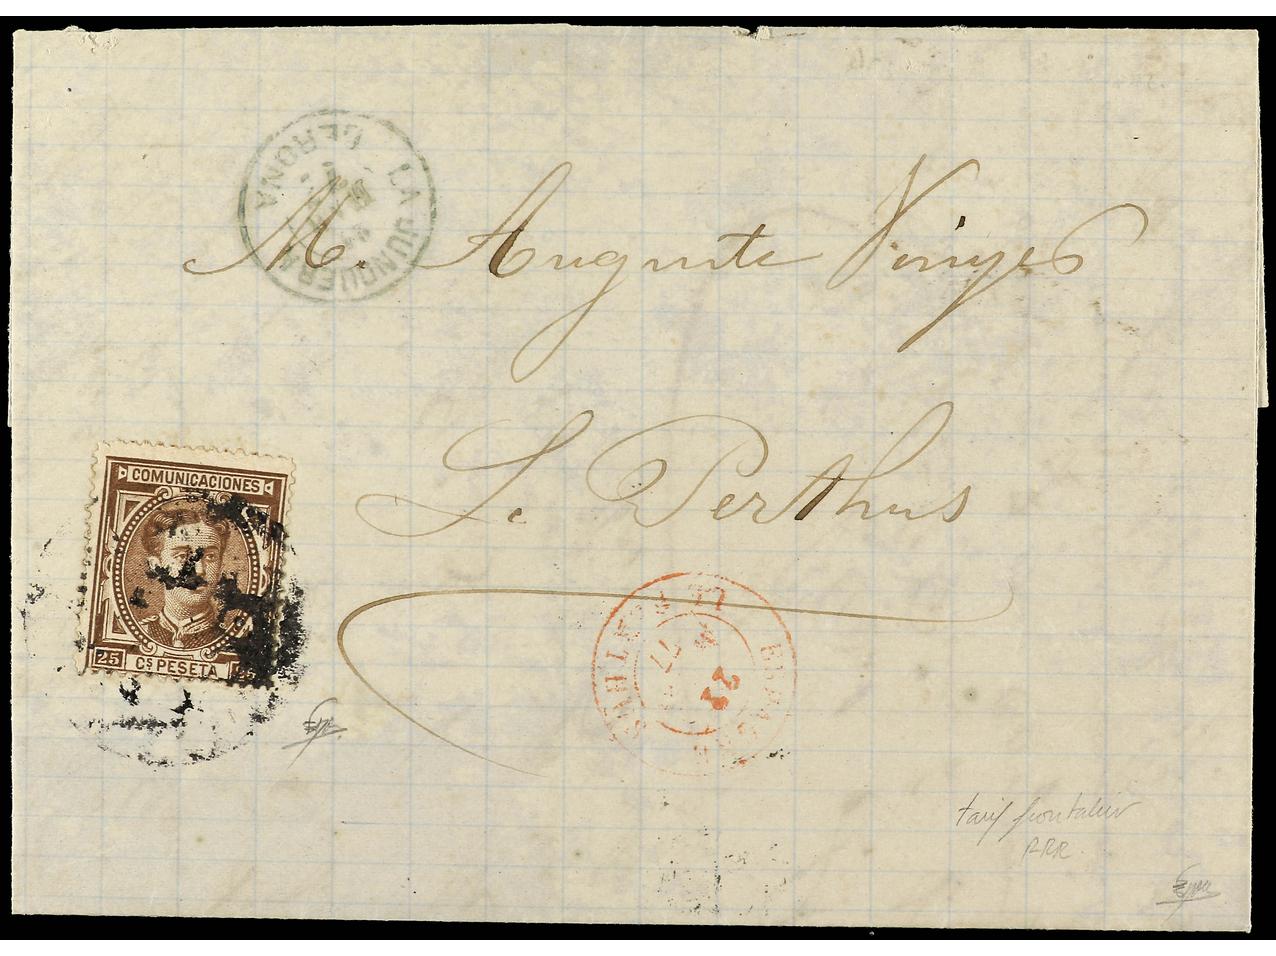 LA JUNQUERA
GERONA
M. Auguste Vinyes
L. Perthus
COMUNICACIONES
25 Cs PESETA 25
LE PERTHUS
77
tarif frontalier
RRR